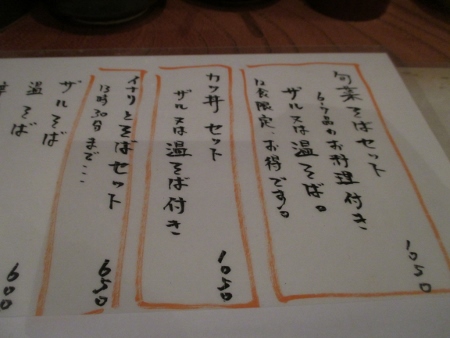 旬菜そばセット
6〜7品のお料理付き
ザル又は温そば。
12食限定、お得です。
1050
カツ丼セット
ザル又は温そば付き
1050
イナリとそばセット
13時30分まで
650
ザルそば
温そば
600